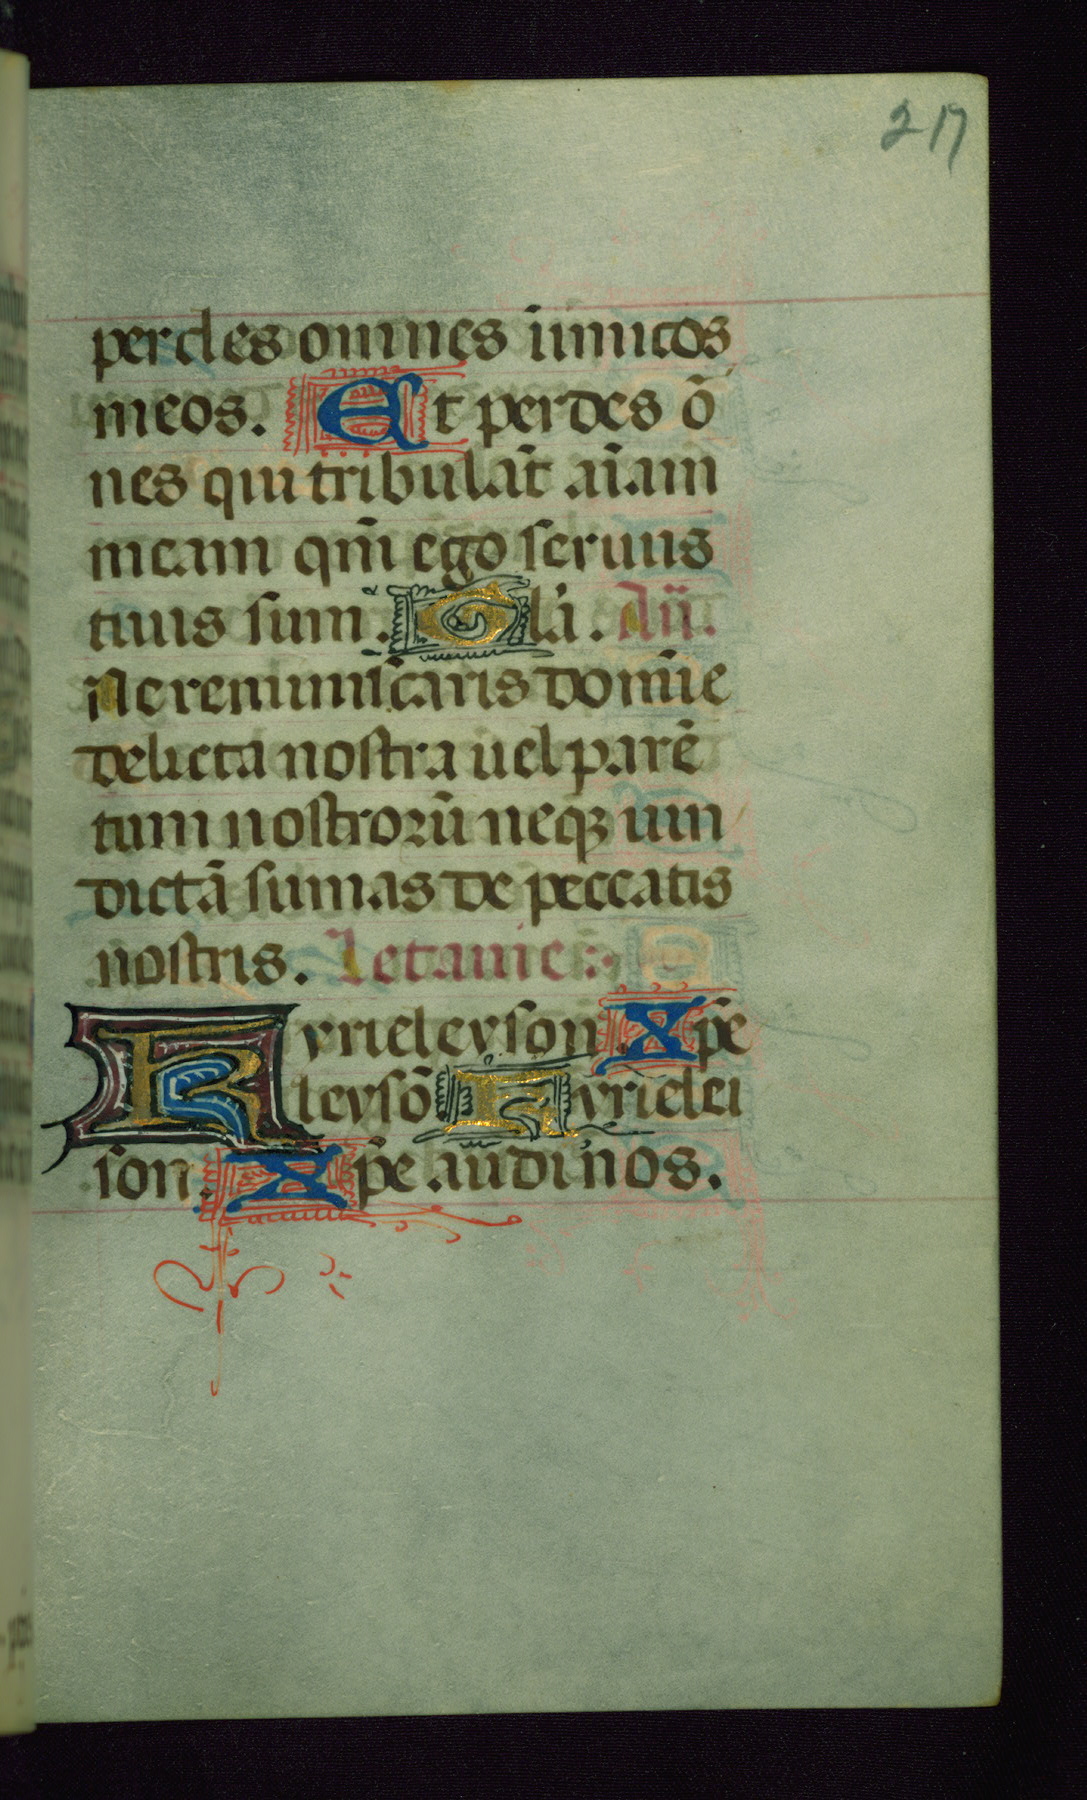 217
perdes omnes inimicos
meos. Et perdes õ
nes qui tribulãt aĩam
meam qm̃ ego seruus
tuus sum. Gl'i. Añ.
Ne reminiscaris domĩe
delicta nostra uel parẽ
tum nostrorũ neqȝ uin
dictã sumas de peccatis
nostris. Letanie.
Kyrieleyson Xp̃e
leysõ Kyrielei
son. Xp̃e audi nos.